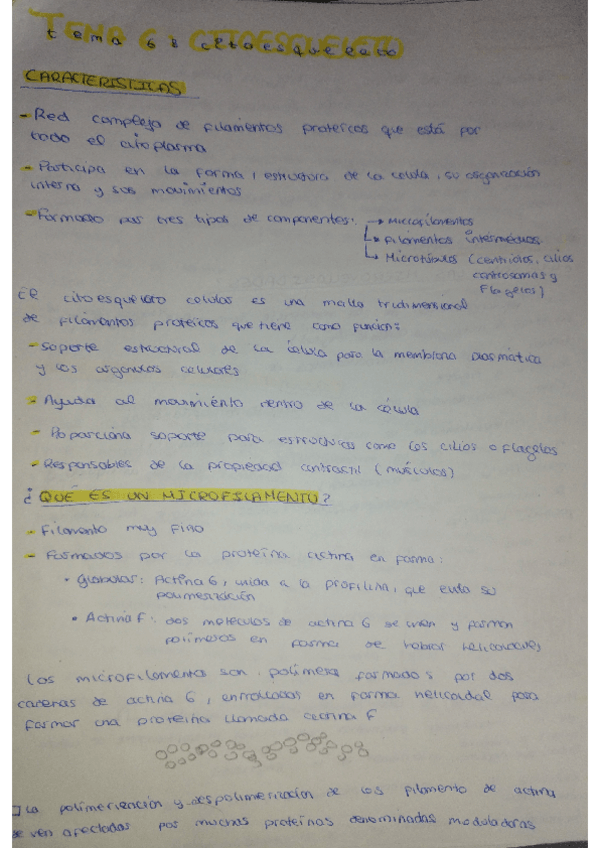 TEMA 6: CITOESQUELETO
tema 6: citoesqueleto
CARACTERISTICAS
- Red compleja de filamentos proteicos que está por
todo el citoplasma
- Participa en la forma, estructura de la celula, su organización
interna y sus movimientos
- Formado por tres tipos de componentes: → Microfilamentos
→ Filamentos intermedios
→ Microtúbulos (centriolos, cilios
centrosomas y
Flagelos)
El citoesqueleto celular es una malla tridimensional
de filamentos proteicos que tiene como función:
- Soporte estructural de la célula para la membrana plasmática
y los organulos celulares
- Ayuda al movimiento dentro de la célula
- Proporciona soporte para estructuras como los cilios o flagelos
- Responsables de la propiedad contractil (músculos)
¿QUÉ ES UN MICROFILAMENTO?
- Filamento muy fino
- Formados por la proteína actina en forma:
• Globular: Actina G, unida a la profilina, que evita su
polimerización
• Actina F: dos moleculas de actina G se unen y forman
polímeros en forma de hebras helicoidales
Los microfilamentos son polímeros formados por dos
cadenas de actina G, enrolladas en forma helicoidal para
formar una proteína llamada actina F
La polimerización y despolimerización de los filamento de actina
se ven afectadas por muchas proteínas denominadas moduladoras